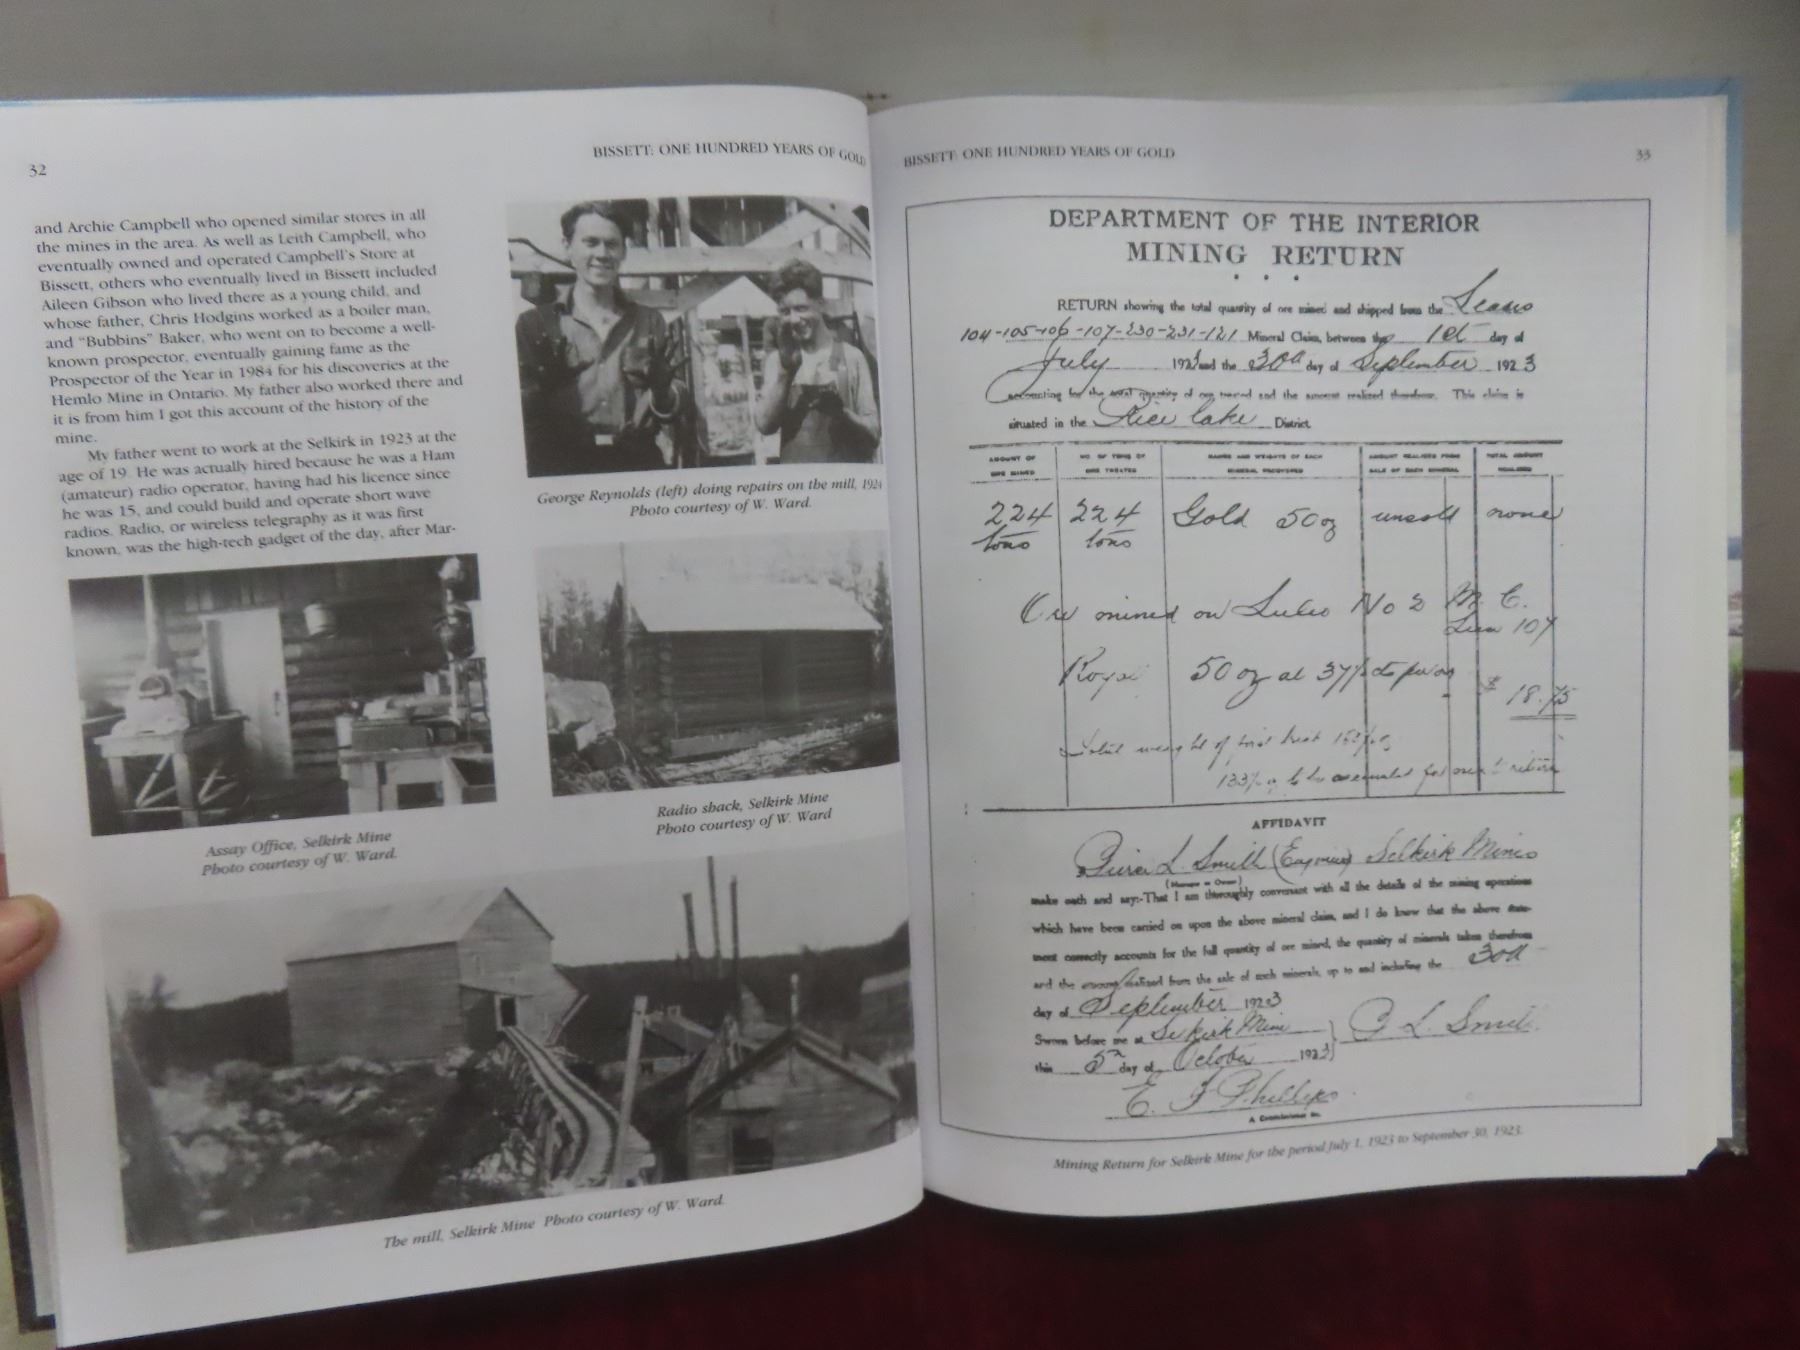 32
BISSETT: ONE HUNDRED YEARS OF GOLD
and Archie Campbell who opened similar stores in all
the mines in the area. As well as Leith Campbell, who
eventually owned and operated Campbell's Store at
Bissett, others who eventually lived in Bissett included
Aileen Gibson who lived there as a young child, and
whose father, Chris Hodgins worked as a boiler man,
and "Bubbins" Baker, who went on to become a well-
known prospector, eventually gaining fame as the
Prospector of the Year in 1984 for his discoveries at the
Hemlo Mine in Ontario. My father also worked there and
it is from him I got this account of the history of the
mine.
My father went to work at the Selkirk in 1923 at the
age of 19. He was actually hired because he was a Ham
(amateur) radio operator, having had his licence since
he was 15, and could build and operate short wave
radios. Radio, or wireless telegraphy as it was first
known, was the high-tech gadget of the day, after Mar-
George Reynolds (left) doing repairs on the mill, 1924
Photo courtesy of W. Ward.
Assay Office, Selkirk Mine
Photo courtesy of W. Ward.
Radio shack, Selkirk Mine
Photo courtesy of W. Ward
The mill, Selkirk Mine Photo courtesy of W. Ward.
BISSETT: ONE HUNDRED YEARS OF GOLD
33
DEPARTMENT OF THE INTERIOR
MINING RETURN
RETURN showing the total quantity of ore mined and shipped from the
104-105-106-107-230-231-121 Mineral Claim, between the 1st day of
July 192 and the 30th day of September 1923
accounting for the total quantity of ore mined and the amount realized therefrom. This claim is
situated in the Rice Lake District.
AMOUNT OF ORE MINED
NO. OF TONS OF ORE TREATED
NAMES AND WEIGHTS OF EACH MINERAL RECOVERED
AMOUNT REALIZED FROM SALE OF EACH MINERAL
TOTAL AMOUNT REALIZED
224 tons
224 tons
Gold 50 oz
unsold
none
Ore mined on No 2 M. C.
107
50 oz at 37½ cts per oz
$ 18.75
AFFIDAVIT
L. Smith Selkirk Mines
(Manager or Owner)
make oath and say:-That I am thoroughly conversant with all the details of the mining operations
which have been carried on upon the above mineral claim, and I do know that the above state-
ment correctly accounts for the full quantity of ore mined, the quantity of minerals taken therefrom
and the amount realized from the sale of such minerals, up to and including the 30th
day of September 1923
Sworn before me at Selkirk Mine
this 5th day of October 1923
L. Smith
E. F. Phillips
A Commissioner etc.
Mining Return for Selkirk Mine for the period July 1, 1923 to September 30, 1923.